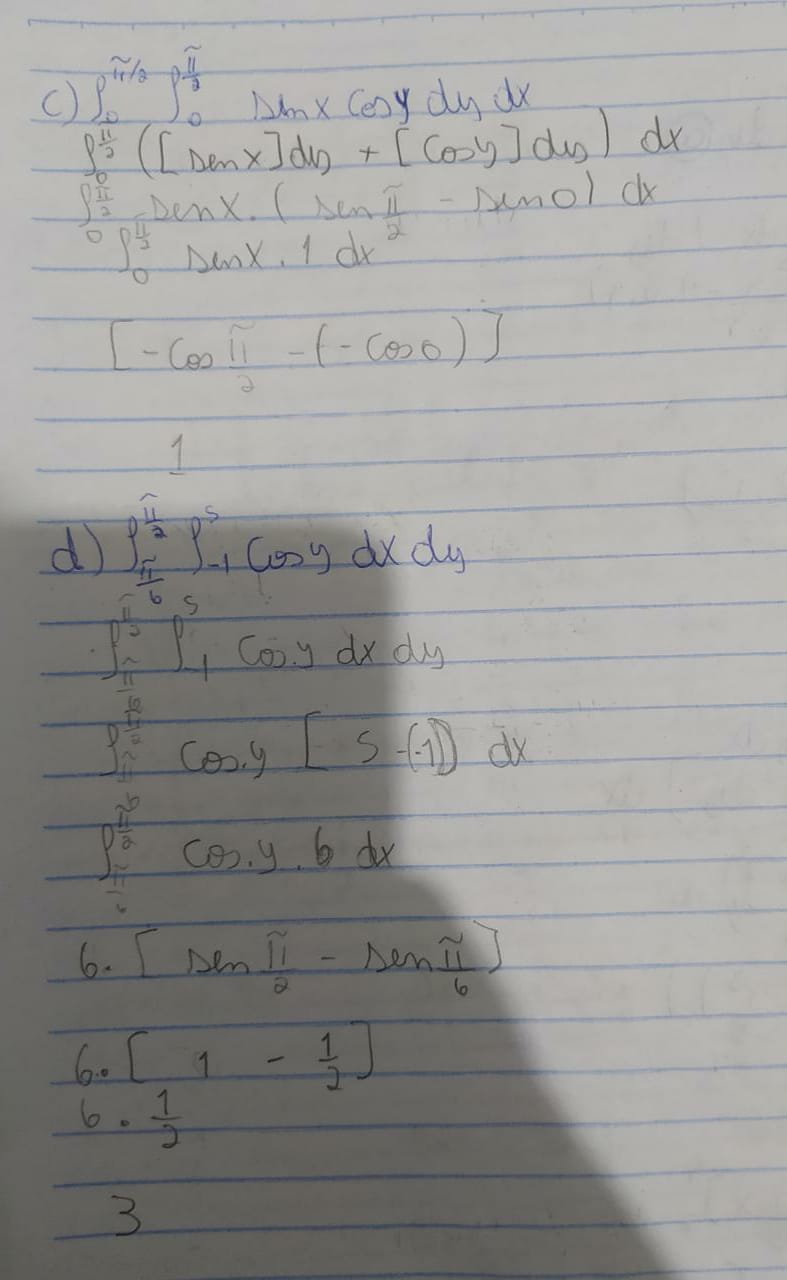 c) ∫₀^π/2 ∫₀^π/2 sen x cos y dy dx
∫₀^π/2 ([sen x] dy + [cos y] dy) dx
∫₀^π/2 sen x . (sen π/2 - sen 0) dx
∫₀^π/2 sen x . 1 dx
[-cos π/2 - (-cos 0)]
1
d) ∫_π/6^π/2 ∫₋₁^5 cos y dx dy
∫_π/6^π/2 ∫₋₁^5 cos.y dx dy
∫_π/6^π/2 cos.y [5 -(-1)] dx
∫_π/6^π/2 cos.y . 6 dx
6. [sen π/2 - sen π/6]
6. [1 - 1/2]
6 . 1/2
3